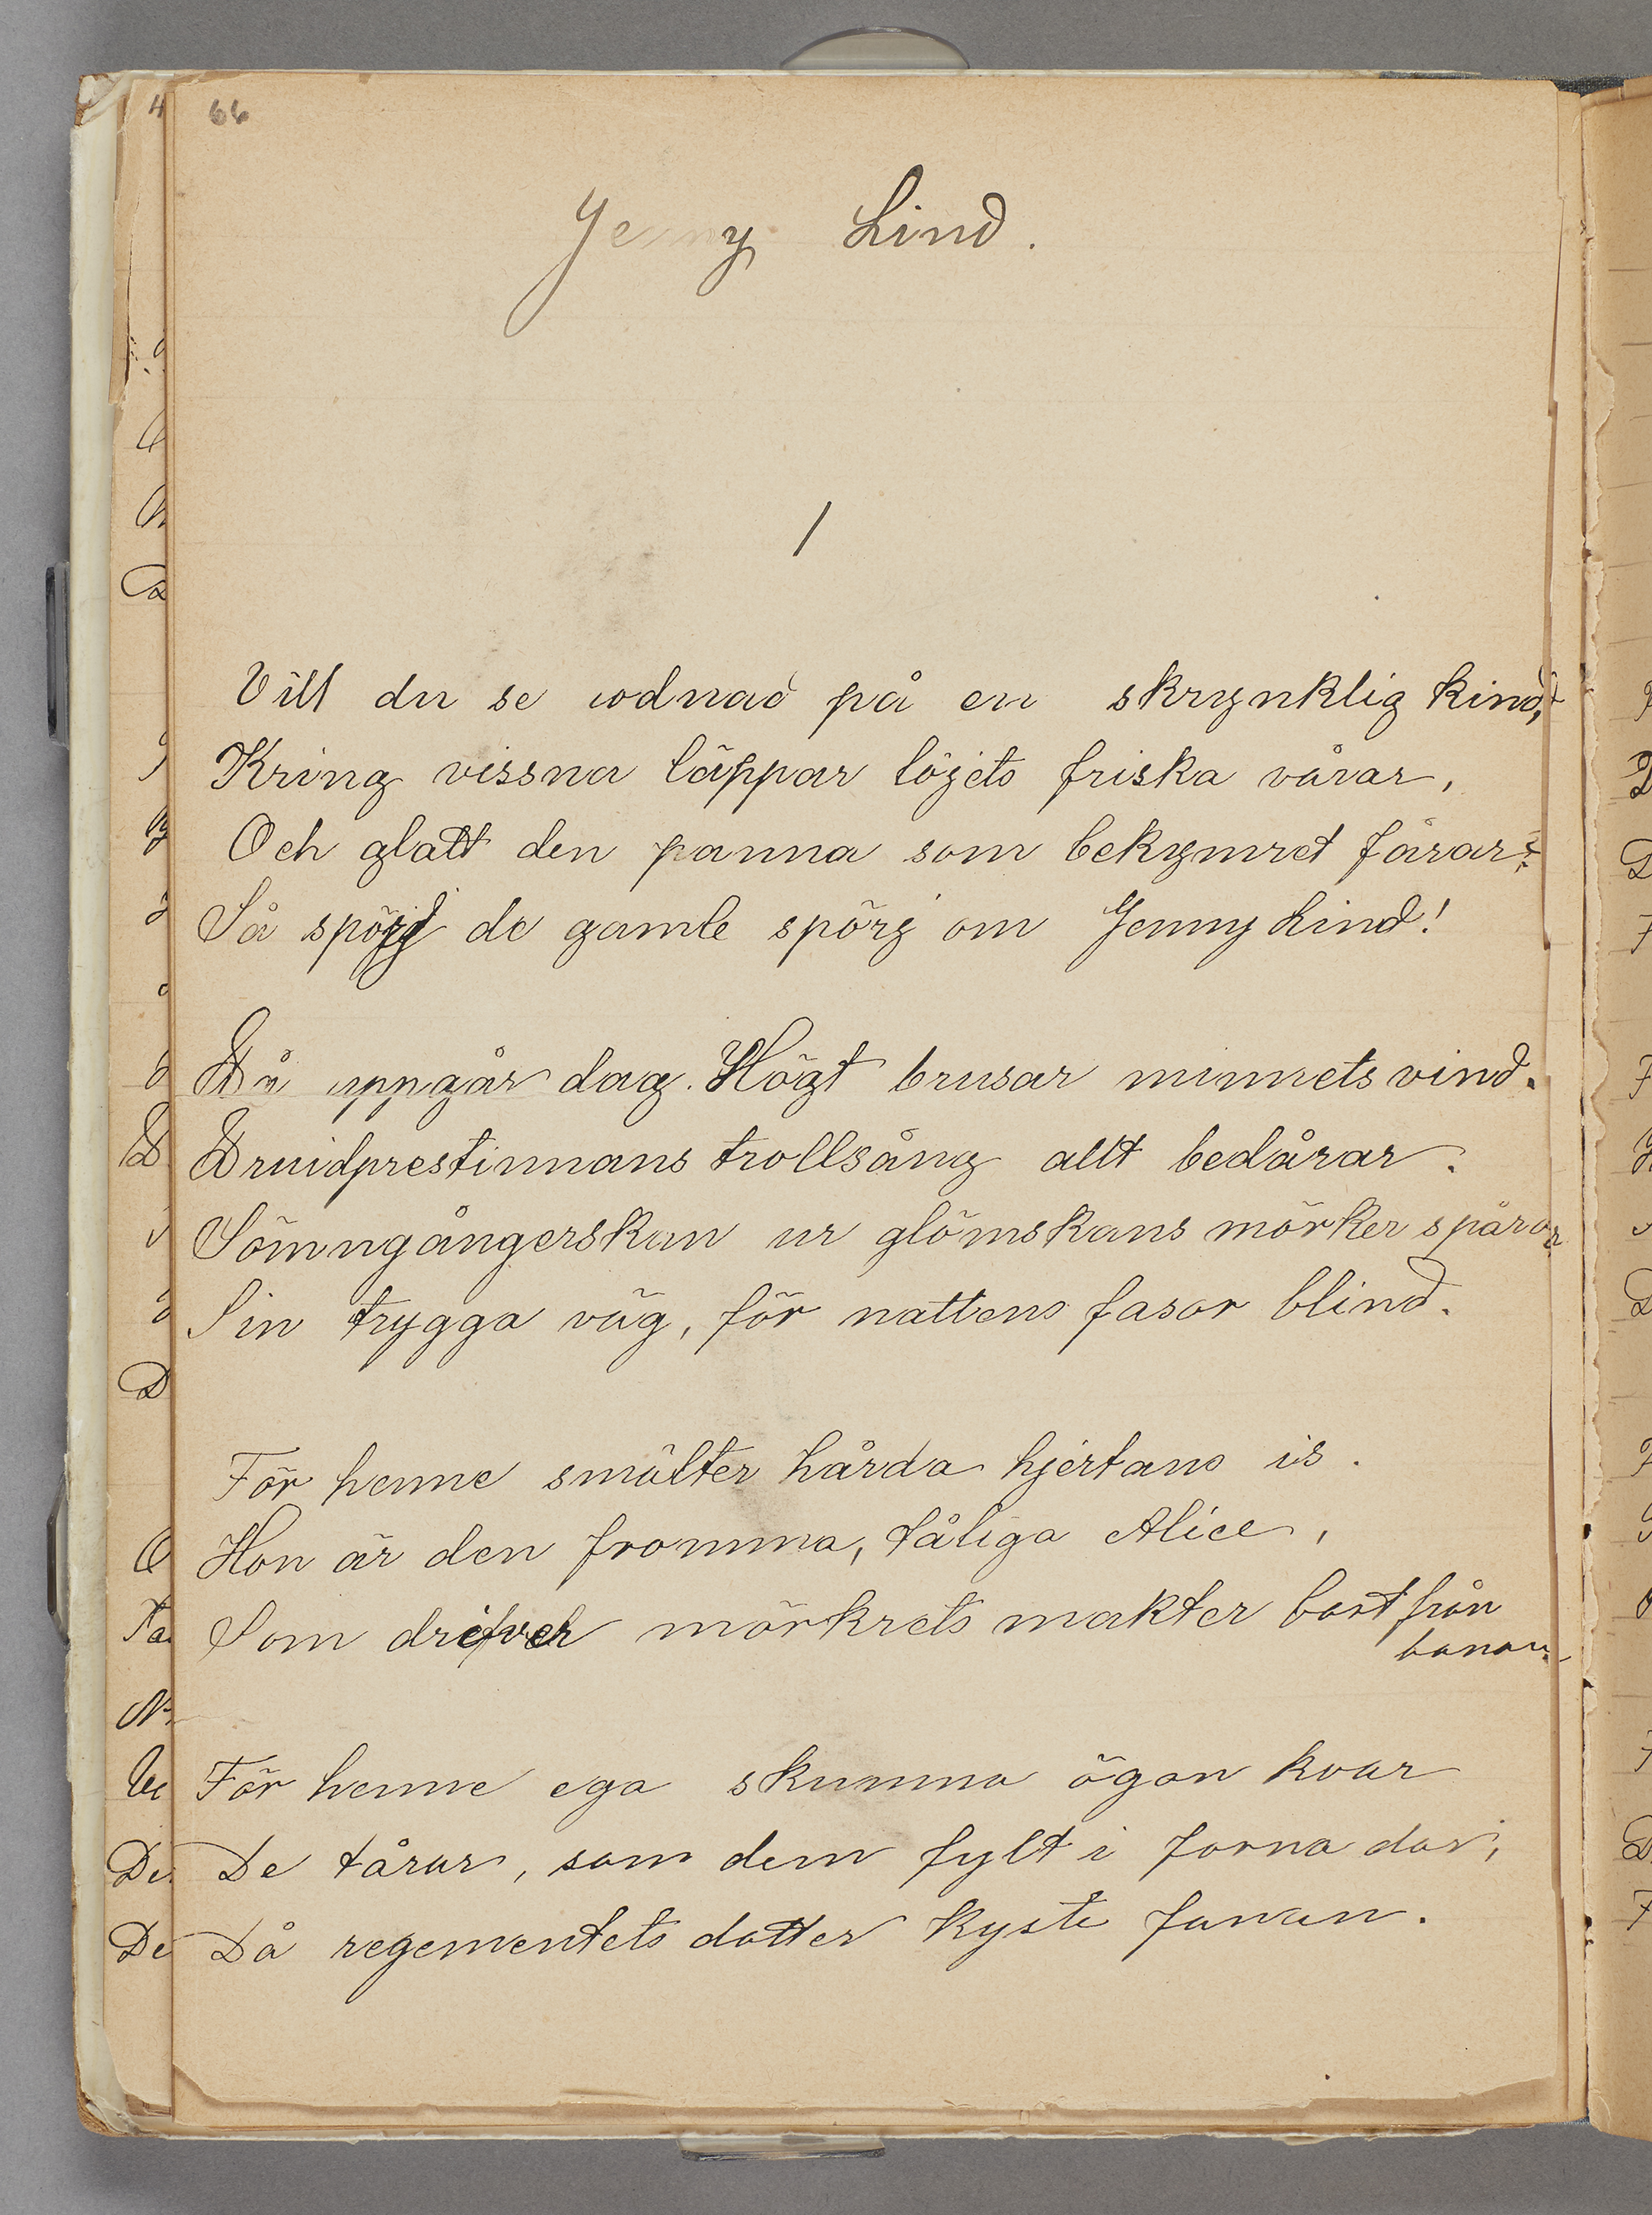 66
Jenny Lind.
1
Vill du se rodnad på en skrynklig kind,
Kring vissna läppar löjets friska vårar,
Och glatt den panna som bekymret fårar:
Så spörj de gamle spörj om Jenny Lind!
Då uppgår dag. Högt brusar minnets vind.
Druidprestinnans trollsång allt bedårar.
Sömngångerskan ur glömskans mörker spårar
Sin trygga väg, för nattens fasor blind.
För henne smälter hårda hjertans is.
Hon är den fromma, tåliga Alice,
Som drifver mörkrets makter bort från
banan.
För henne ega skumma ögon kvar
De tårar, som dem fylt i forna dar,
Då regementets dotter kyste fanan.